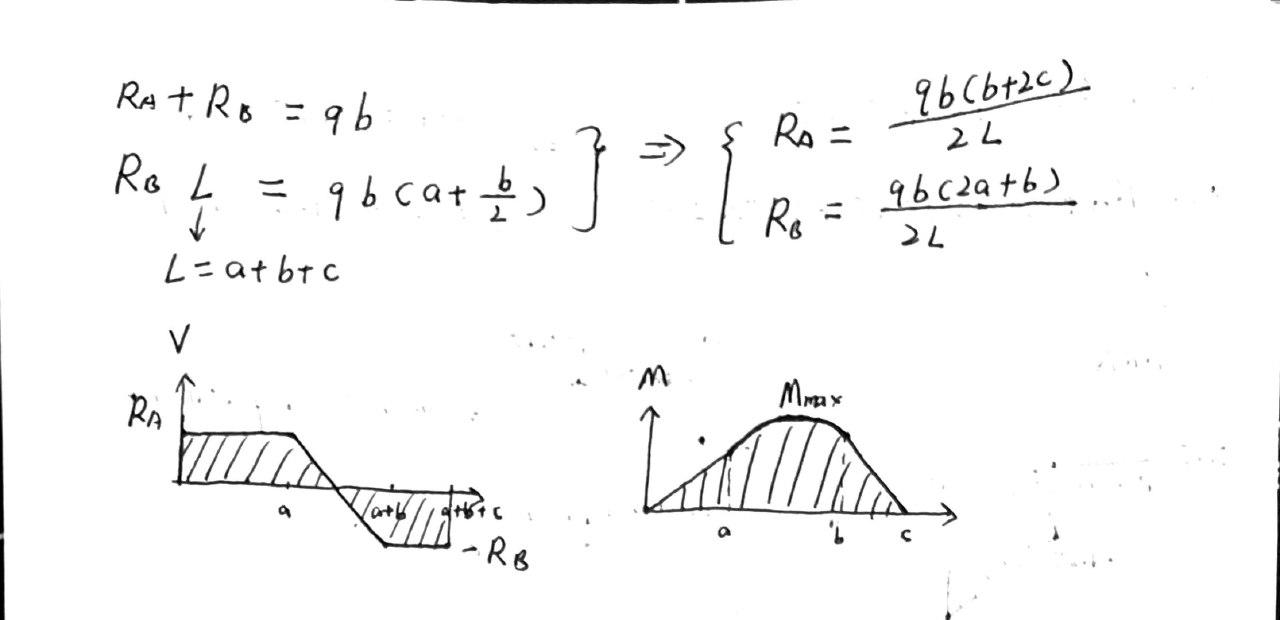 RA + RB = qb
RB L = qb(a + b/2)
} ⇒ {
RA = qb(b+2c) / 2L
RB = qb(2a+b) / 2L
↓
L = a+b+c
V
RA
a
a+b
a+b+c
-RB
M
Mmax
a
b
c